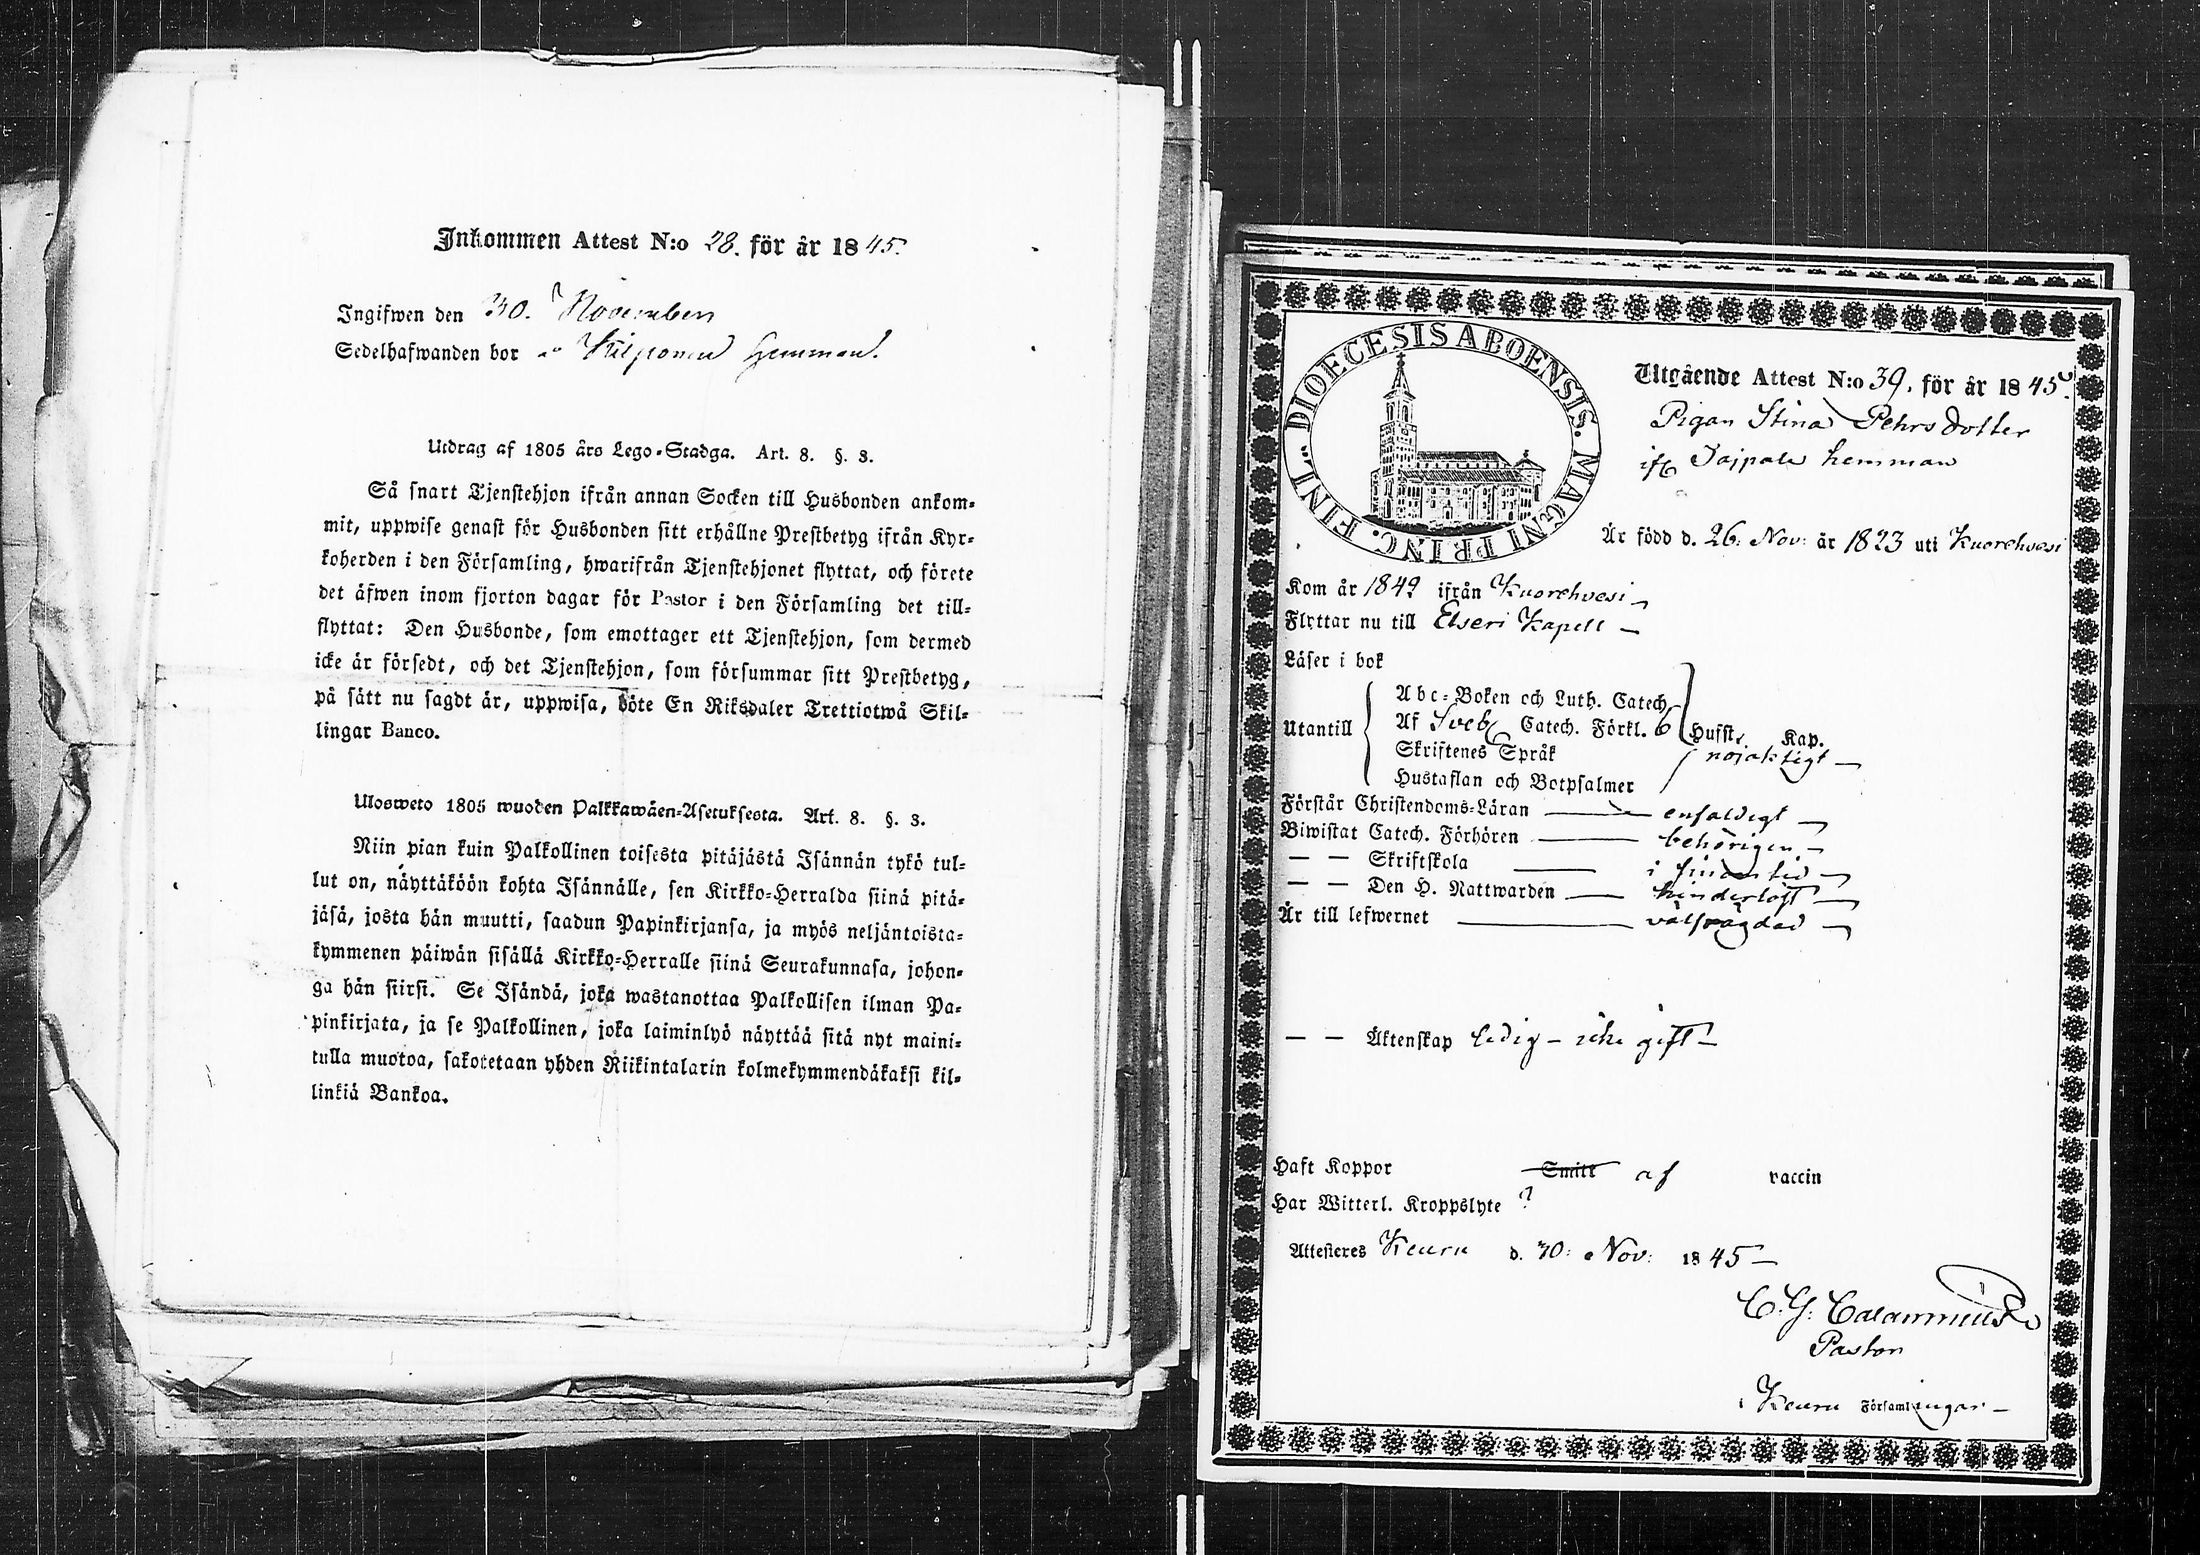 Inkommen Attest N:o 28. för år 1845.
Ingifwen den 30. November
Sedelhafwanden bor Kilponen hemman.
Utdrag af 1805 års Lego-Stadga. Art. 8. §. 3.
Så snart Tjenstehjon ifrån annan Socken till Husbonden ankom-
mit, uppwise genast för Husbonden sitt erhållne Prestbetyg ifrån Kyr-
koherden i den Församling, hwarifrån Tjenstehjonet flyttat, och förete
det äfwen inom fjorton dagar för Pastor i den Församling det till-
flyttat: Den Husbonde, som emottager ett Tjenstehjon, som dermed
icke är försedt, och det Tjenstehjon, som försummar sitt Prestbetyg,
på sätt nu sagdt är, uppwisa, böte En Riksdaler Trettiotwå Skil-
lingar Banco.
Ulosweto 1805 wuoden Palkkawäen-Asetuksesta. Art. 8. §. 3.
Niin pian kuin Palkollinen toisesta pitäjästä Isännän tykö tul-
lut on, näyttäköön kohta Isännälle, sen Kirkko-Herralda siinä pitä-
jäsä, josta hän muutti, saadun Papinkirjansa, ja myös neljäntoista-
kymmenen päiwän sisällä Kirkko-Herralle siinä Seurakunnasa, johon-
ga hän siirsi. Se Isändä, joka wastanottaa Palkollisen ilman Pa-
pinkirjata, ja se Palkollinen, joka laiminlyö näyttää sitä nyt maini-
tulla muotoa, sakotetaan yhden Riikintalarin kolmekymmendäkaksi kil-
linkiä Bankoa.
DIOECESIS ABOENSIS. MAGNI PRINC. FINL.
Utgående Attest N:o 39. för år 1845.
Pigan Stina Pehrsdotter
ifr Jajpala hemman
Är född d. 26. Nov: år 1823 uti Kuorehvesi
Kom år 1842 ifrån Kuorehvesi
Flyttar nu till Etseri Kapell
Läser i bok
Utantill
Abc-Boken och Luth. Catech.
Af Sveb Catech. Förkl. 6 Hufst. Kap.
Skriftenes Språk nöjaktigt
Hustaflan och Botpsalmer
Förstår Christendoms-Läran enfaldigt
Biwistat Catech. Förhören behörigen
— — Skriftskola i sinom tid
— — Den H. Nattwarden hinderlöst
Är till lefwernet välfrägdad
— — Äktenskap ledig - icke gift
Haft Koppor Smitt af vaccin
Har Witterl. Kroppslyte ?
Attesteres Keuru d. 30: Nov: 1845
Pastor
i Keuru Församlingar